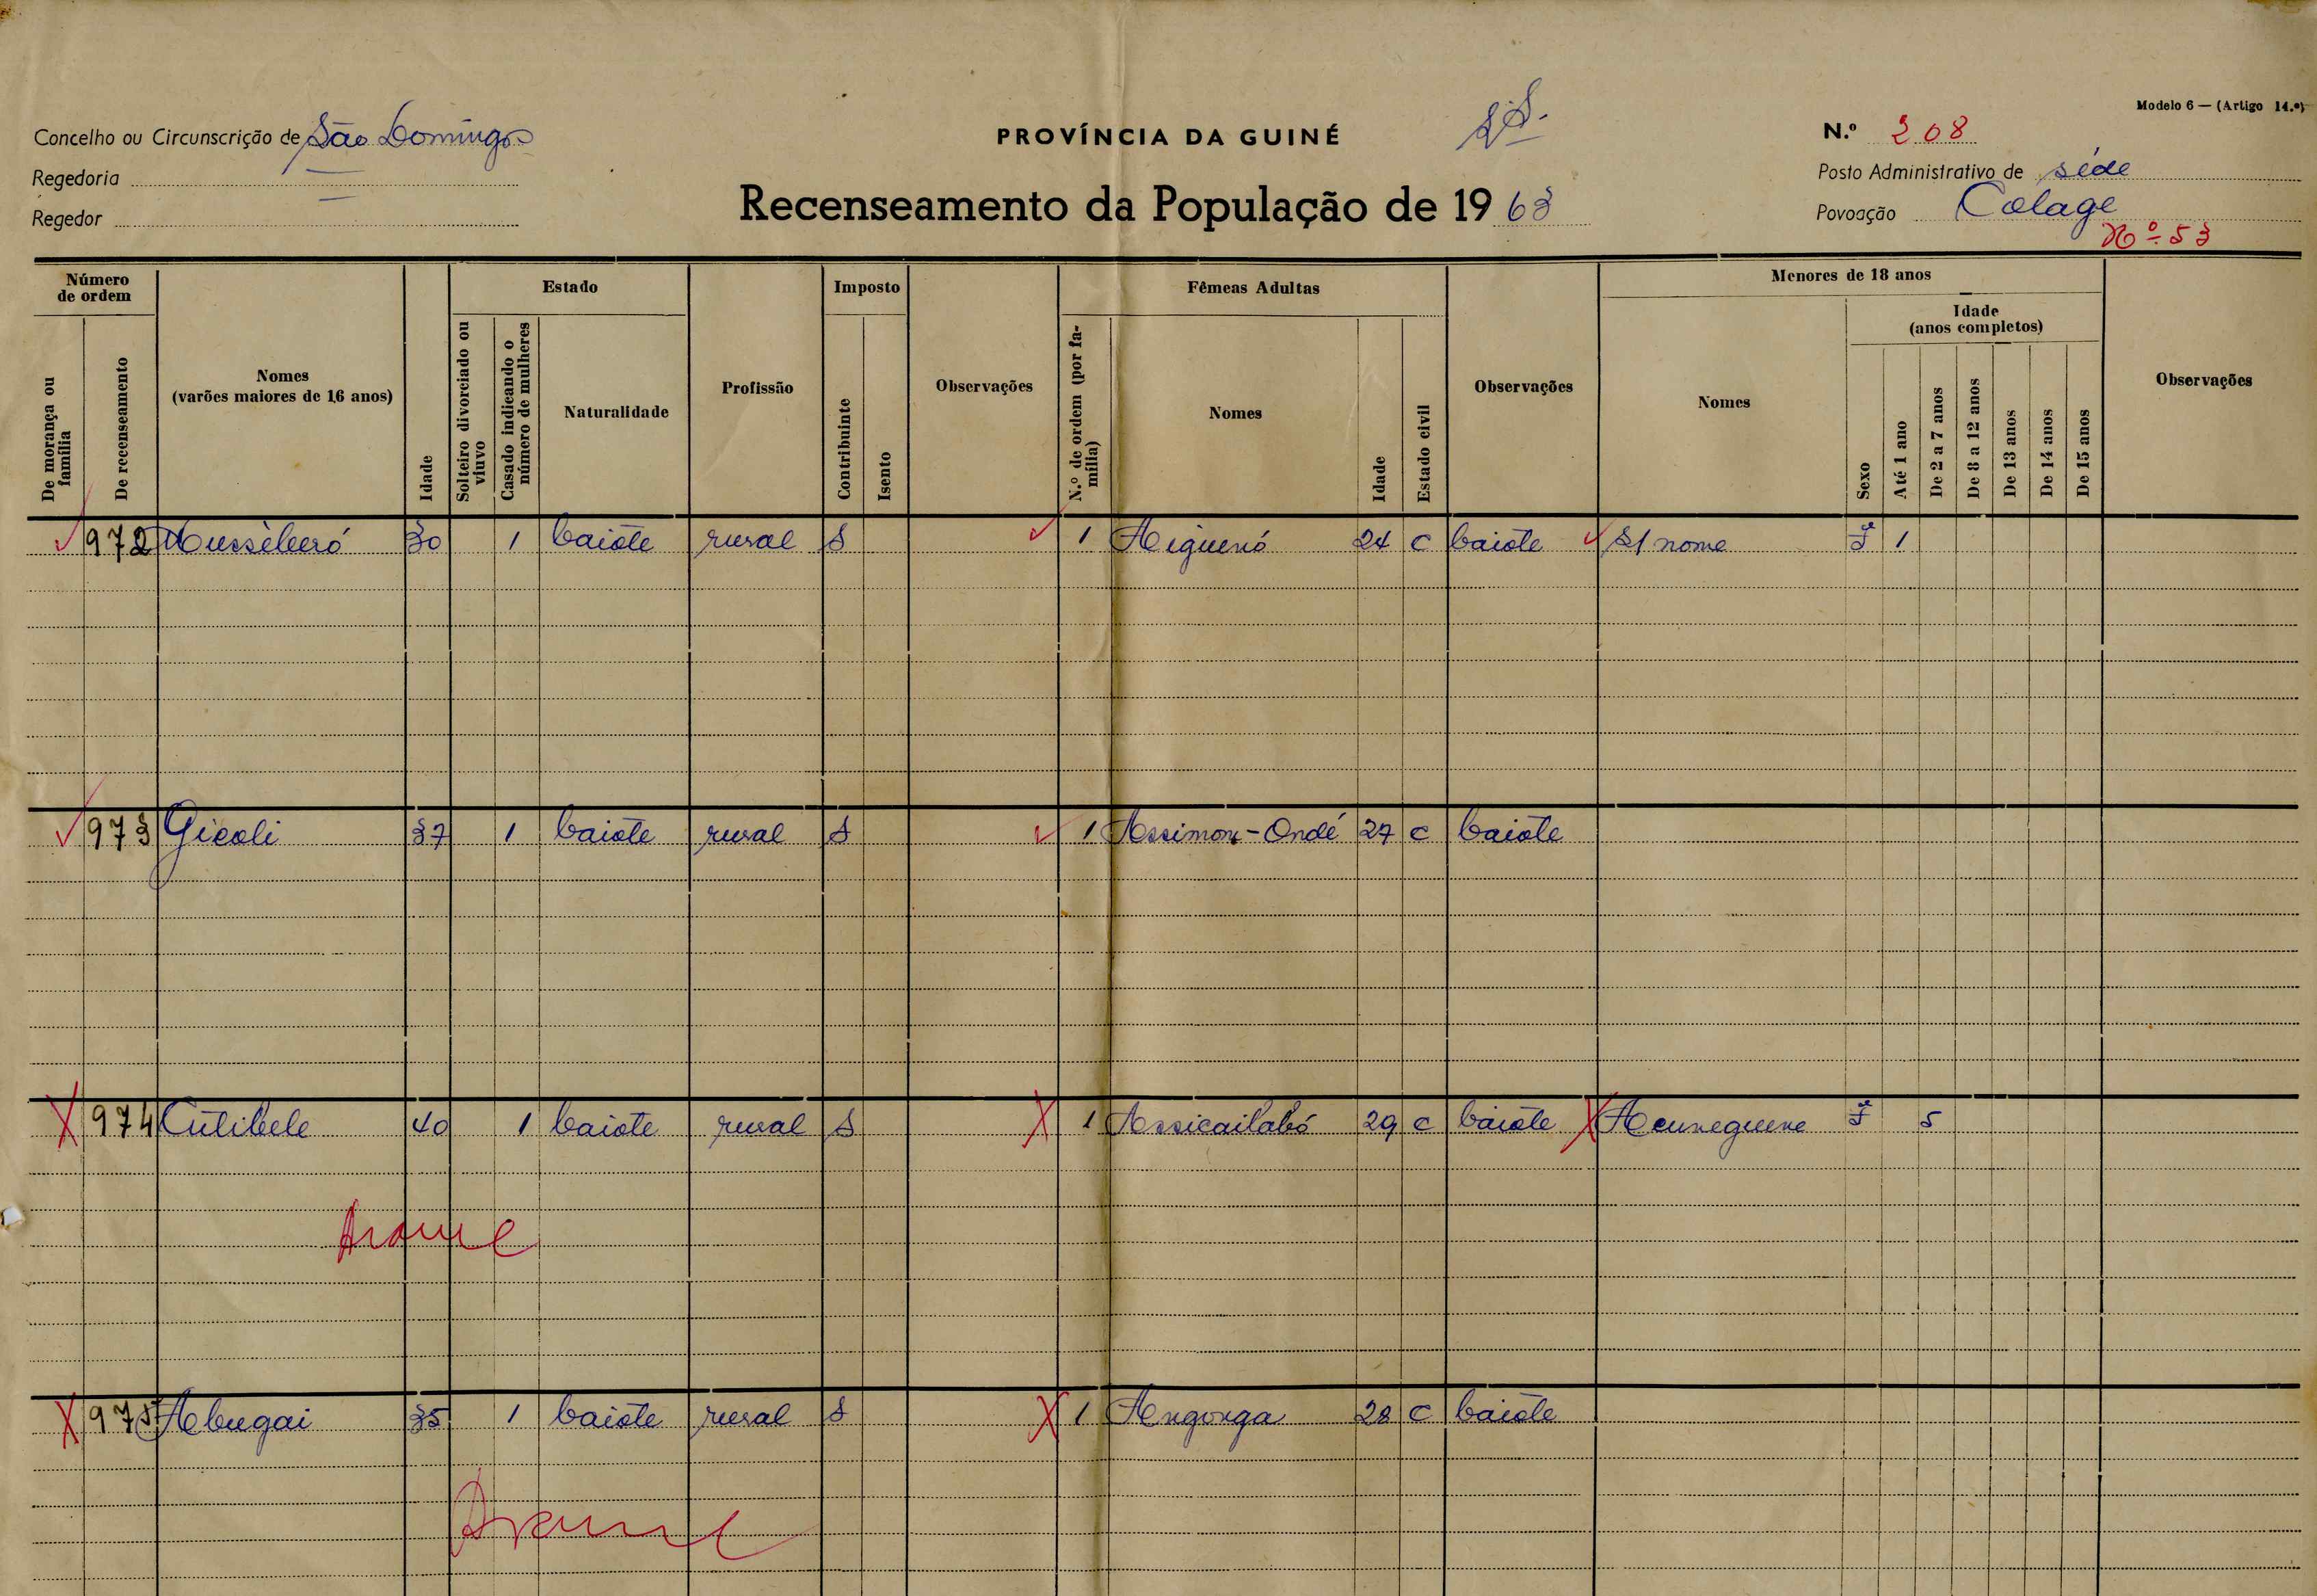 Modelo 6 — (Artigo 14.º)
Concelho ou Circunscrição de São Domingos
PROVÍNCIA DA GUINÉ
N.º 208
Regedoria —
Posto Administrativo de séde
Regedor —
Recenseamento da População de 1963
Povoação Colage
Nº 53
Número de ordem
Estado
Imposto
Fêmeas Adultas
Menores de 18 anos
Idade (anos completos)
De morança ou família
De recenseamento
Nomes (varões maiores de 16 anos)
Idade
Solteiro divorciado ou viuvo
Casado indicando o número de mulheres
Naturalidade
Profissão
Contribuinte
Isento
Observações
N.º de ordem (por família)
Nomes
Idade
Estado civil
Observações
Nomes
Sexo
Até 1 ano
De 2 a 7 anos
De 8 a 12 anos
De 13 anos
De 14 anos
De 15 anos
Observações
972 30 1 baiote rural S 1 Aiguenó 24 c baiote S/ nome F 1
973 Gicoli 37 1 baiote rural S 1 Assimon-Ondé 27 c baiote
974 Culibele 40 1 baiote rural S 1 Assicailabó 29 c baiote Acuneguene F 5
Arame
975 Abugai 35 1 baiote rural S 1 Angonga 28 c baiote
Arame